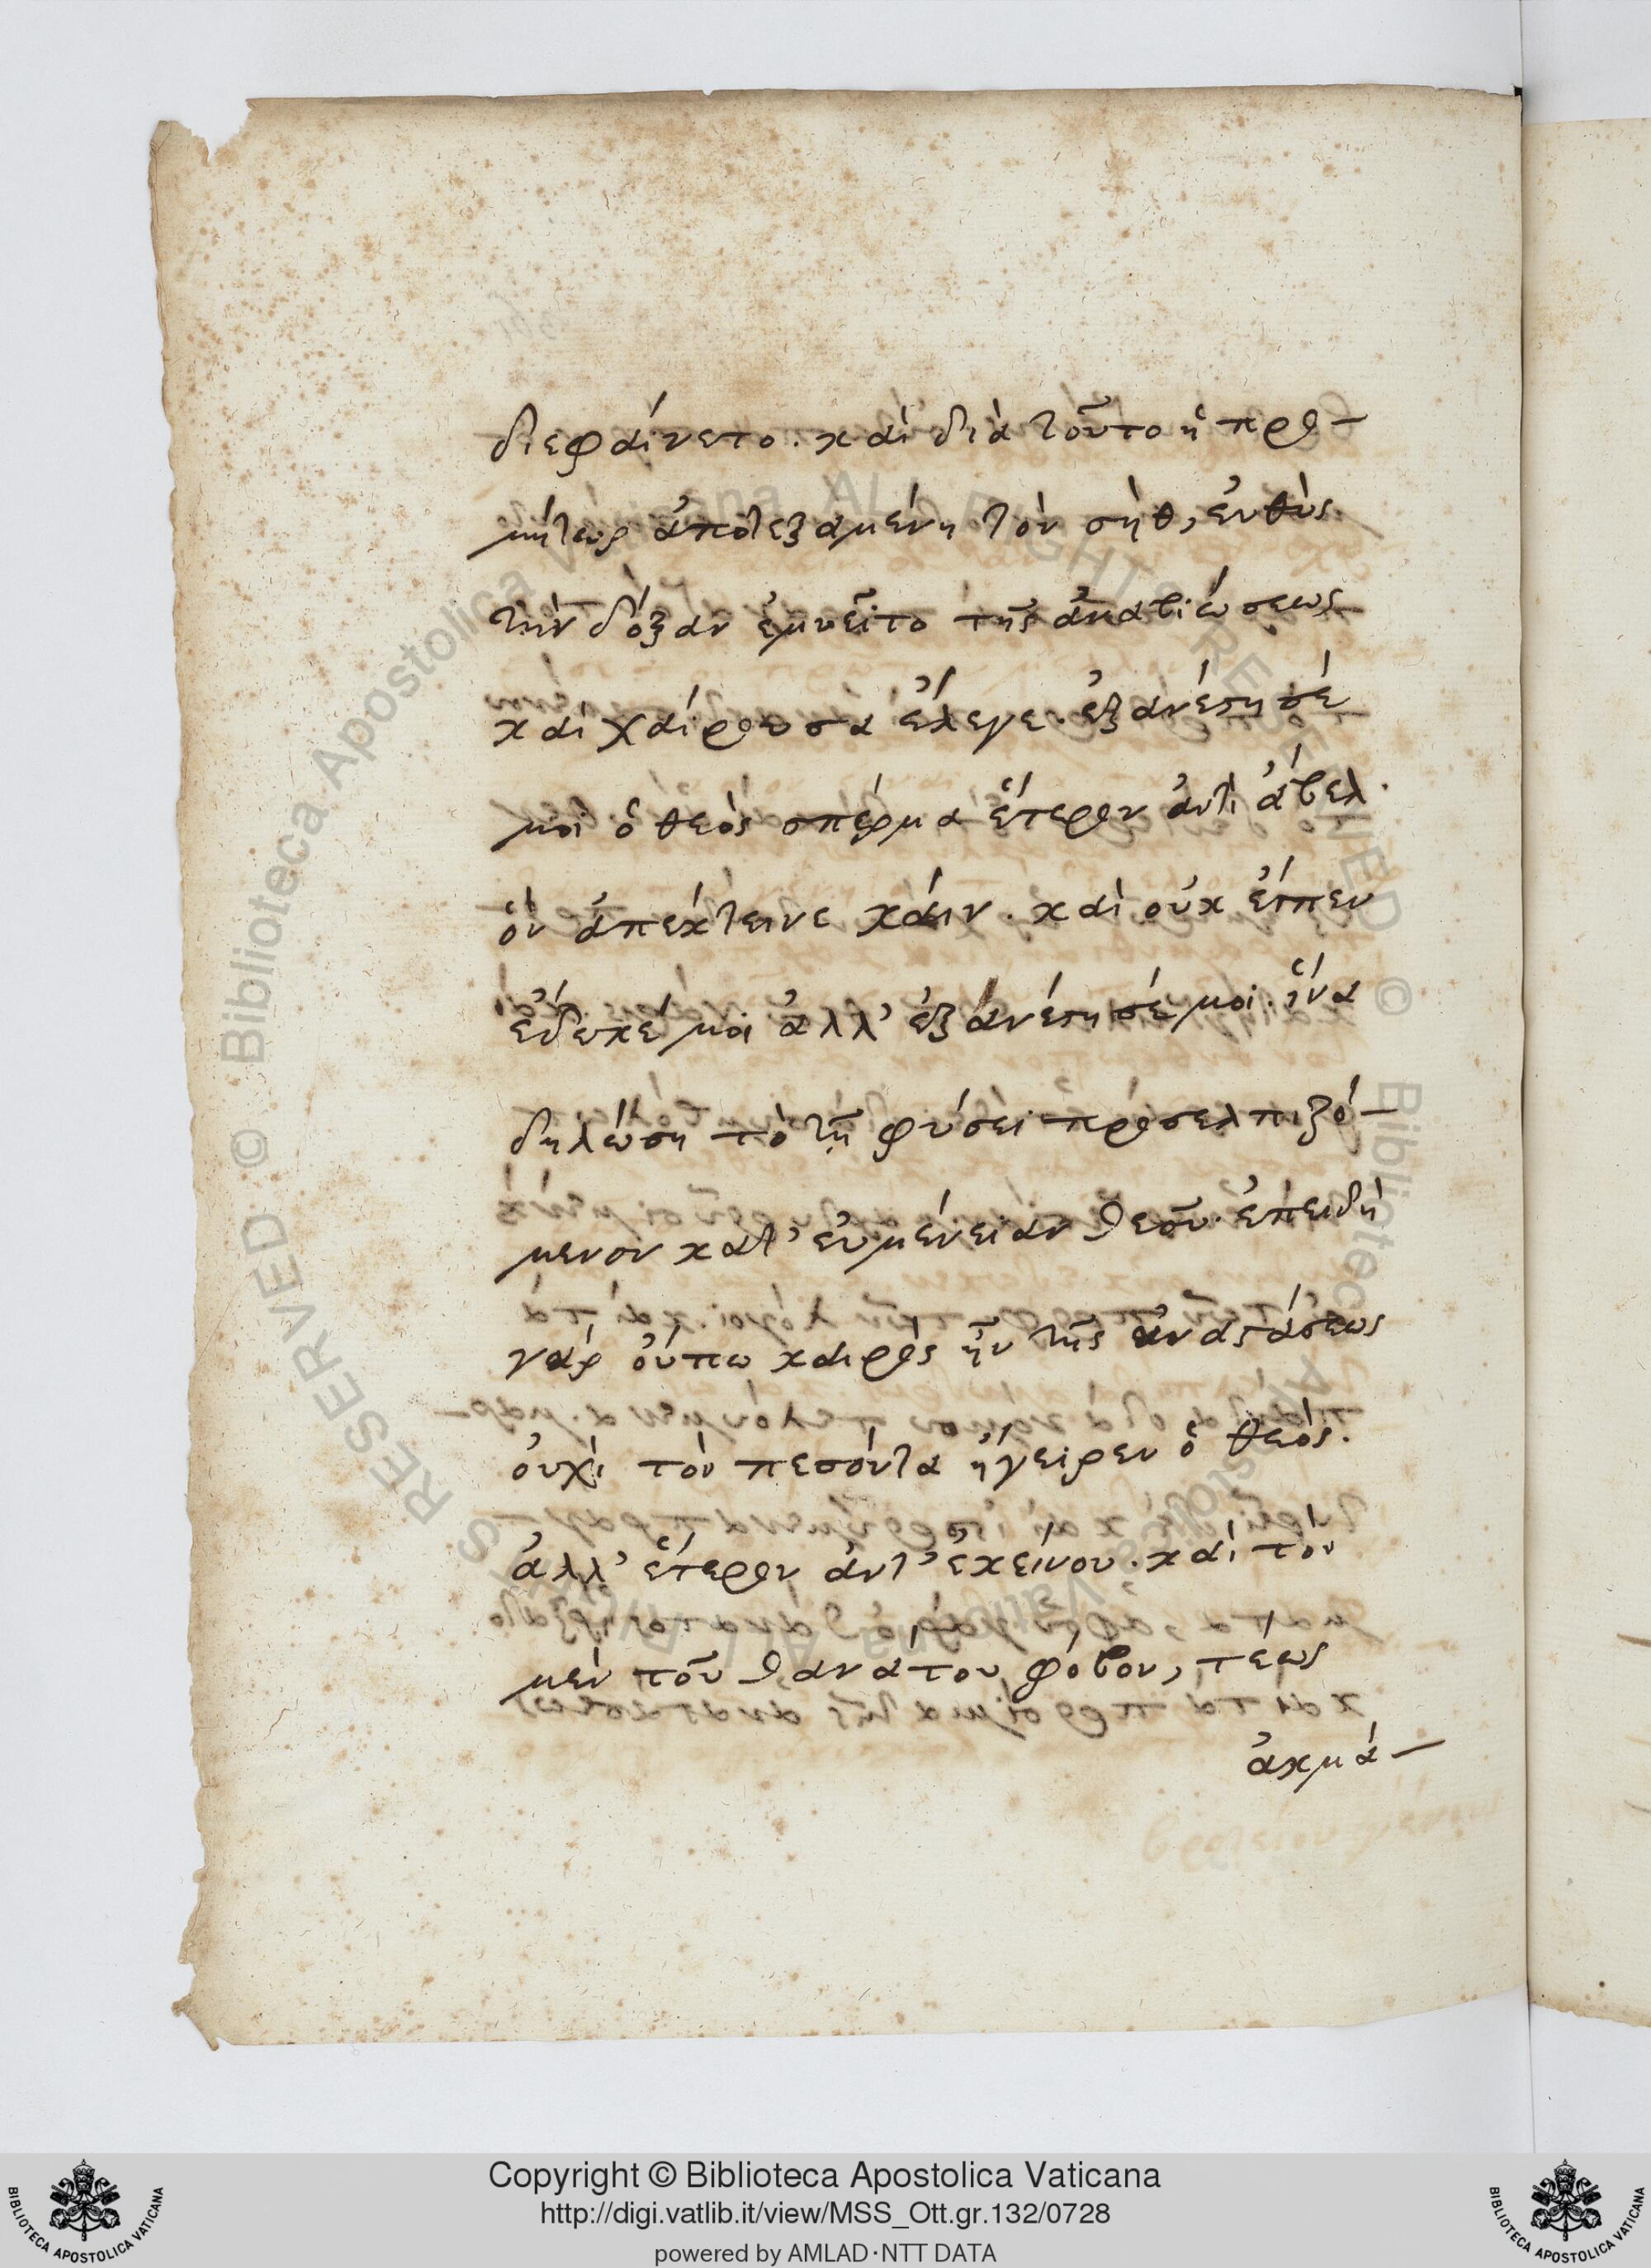 διεφαίνετο. καὶ διὰ τοῦτο ἡ προ-
μήτωρ ἀποτεξαμένη τὸν σὴθ, εὐθὺς
τὴν δόξαν ἐμυεῖτο τῆς ἀναβιώσεως
καὶ χαίρουσα ἔλεγε. ἐξανέστησέ
μοι ὁ θεὸς σπέρμα ἕτερον ἀντὶ ἄβελ.
ὃν ἀπέκτεινε κάιν. καὶ οὐκ εἶπεν
ἔδωκέ μοι ἀλλ' ἐξανέστησέ μοι. ἵνα
δηλώση τὸ τῇ φύσει προσελπιζό-
μενον κατ' εὐμένειαν θεοῦ. ἐπειδὴ
γὰρ οὔπω καιρὸς ἦν τῆς ἀναστάσεως
οὐχὶ τὸν πεσόντα ἤγειρεν ὁ θεός.
ἀλλ' ἕτερον ἀντ' ἐκείνου. καὶ τὸν
μὲν τοῦ θανάτου φόβον, τέως
ἀκμά-
Copyright © Biblioteca Apostolica Vaticana
http://digi.vatlib.it/view/MSS_Ott.gr.132/0728
powered by AMLAD·NTT DATA
BIBLIOTECA APOSTOLICA VATICANA
BIBLIOTECA APOSTOLICA VATICANA